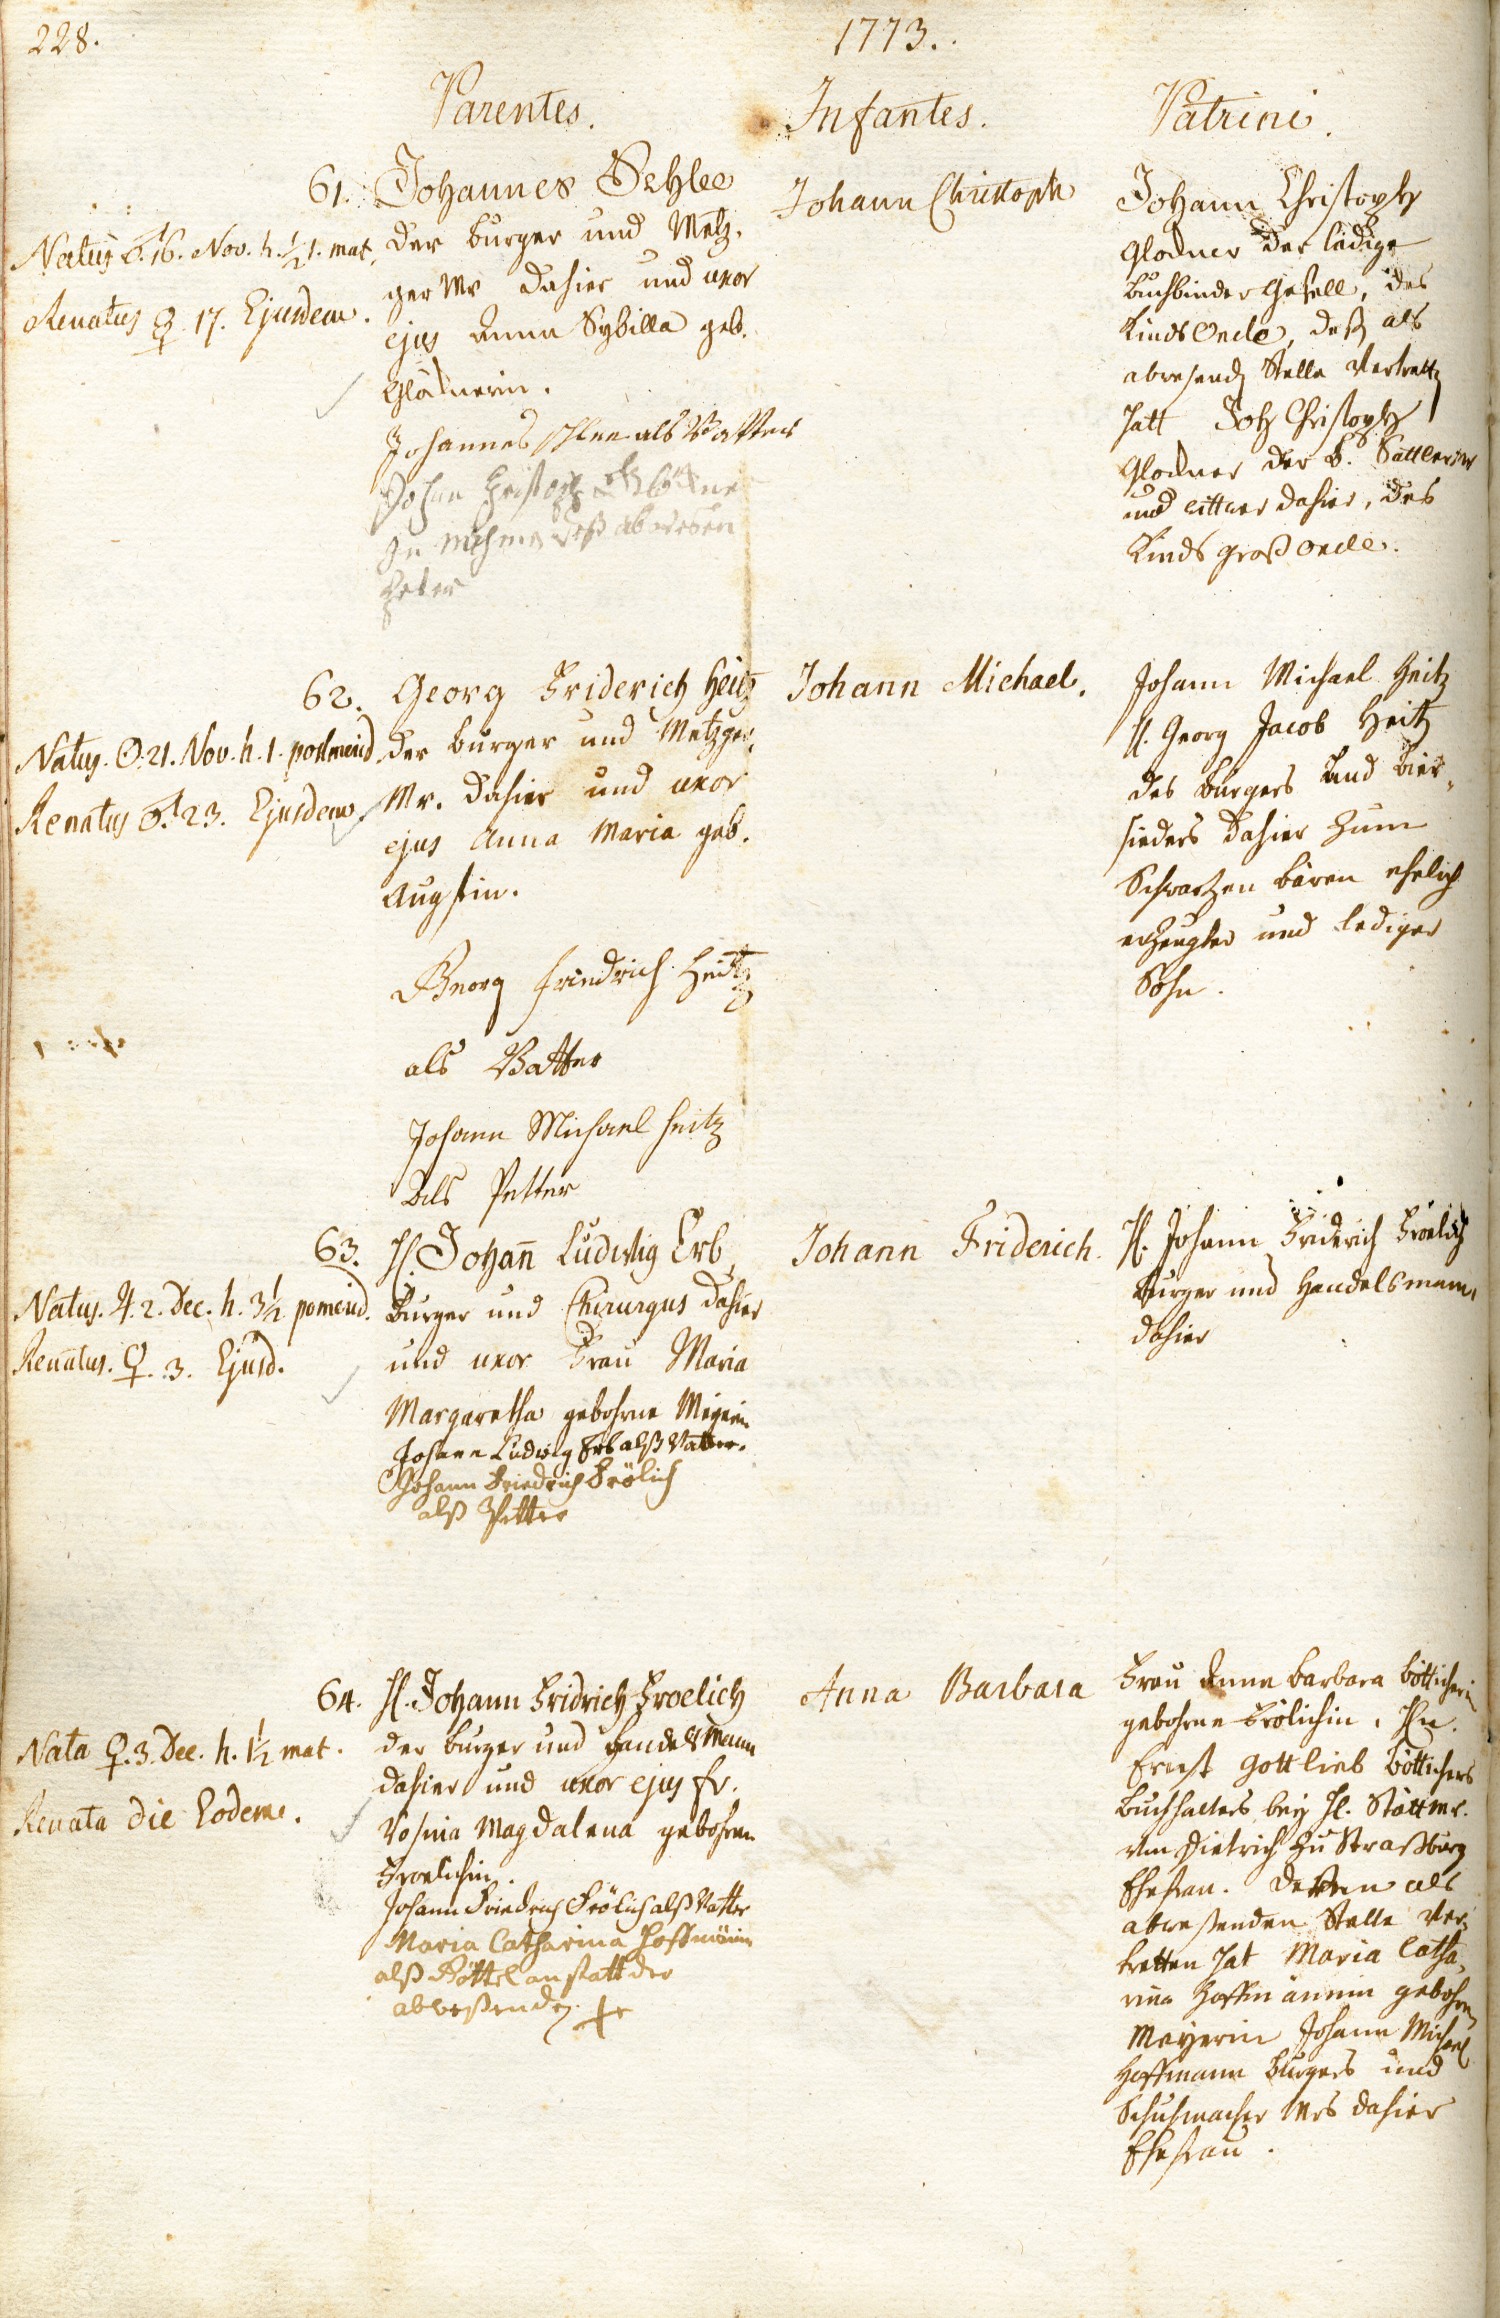 228.
1773.
Parentes.
Infantes.
Patrini.
61. Johannes Schlee
der burger und Metz-
ger Mr dahier und uxor
ejus Anna Sybilla geb.
Glöcknerin.
Johannes schlee als Vatter
Johan Christoph Glöckner
in nahmen deß abwesen
Peter
Natus ♂. 16. Nov. h. ½ 1. mat.
Renatus ♀ 17. Ejusdem.
Johann Christoph
Johann Christoph
Glockner der ledige
buchbinder Gesell, des
Kinds Oncle, deß als
abwesend Stelle Vertrett
hatt Joh Christoph
Glockner der b. Sattler Mr
und dahier, des
Kinds groß oncle.
62. Georg Friderich Heitz
der burger und Metzger
Mr. dahier und uxor
ejus Anna Maria geb.
Augstin.
Georg friedrich Heitz
als Vatter
Johann Michael heitz
Als Petter
Natus. ☉. 21. Nov. h. 1. postmerid
Renatus ♂. 23. Ejusdem.
Johann Michael.
Johann Michael Heitz
H. Georg Jacob Heitz
des burgers und bier-
sieders dahier zum
Schwartzen bären ehelich
erzeugter und lediger
Sohn.
63. H. Johan̄ Ludwig Erb,
burger und Chirurgus dahier
und uxor Frau Maria
Margaretha gebohrne
Johann Ludwig Erb alß Vatter.
Johann Friedrich Frölich
alß Petter
Natus. ♃. 2. Dec. h. 3½ pomerid.
Renatus. ♀. 3. Ejusd.
Johann Friderich.
H. Johann Friderich Froelich
burger und Handelsmann
dahier
64. H. Johann Fridrich Froelich
der burger und handelsmann
dahier und uxor ejus fr.
Rosina Magdalena gebohrne
Froelichin.
Johann Friedrich Frölich alß Vatter
Maria Catharina Hoffmänin
alß Göttel anstatt der
abweßenden.
Nata ♀. 3. Dec. h. 1½ mat.
Renata die Eodem.
Anna Barbara
Frau Anna barbara Bötticherin
gebohrne Frölichin, Hn.
Ernst Gottlieb Böttichers
buchhalters bey H. Stättmr.
von Dietrich zu Straßburg
Ehefrau. deren als
abweßenden Stelle ver-
tretten hat Maria Catha-
rina Hoffmännin gebohrne
Meyerin Johann Michael
Hoffmann burgers und
Schuhmacher Mrs dahier
Ehefrau.